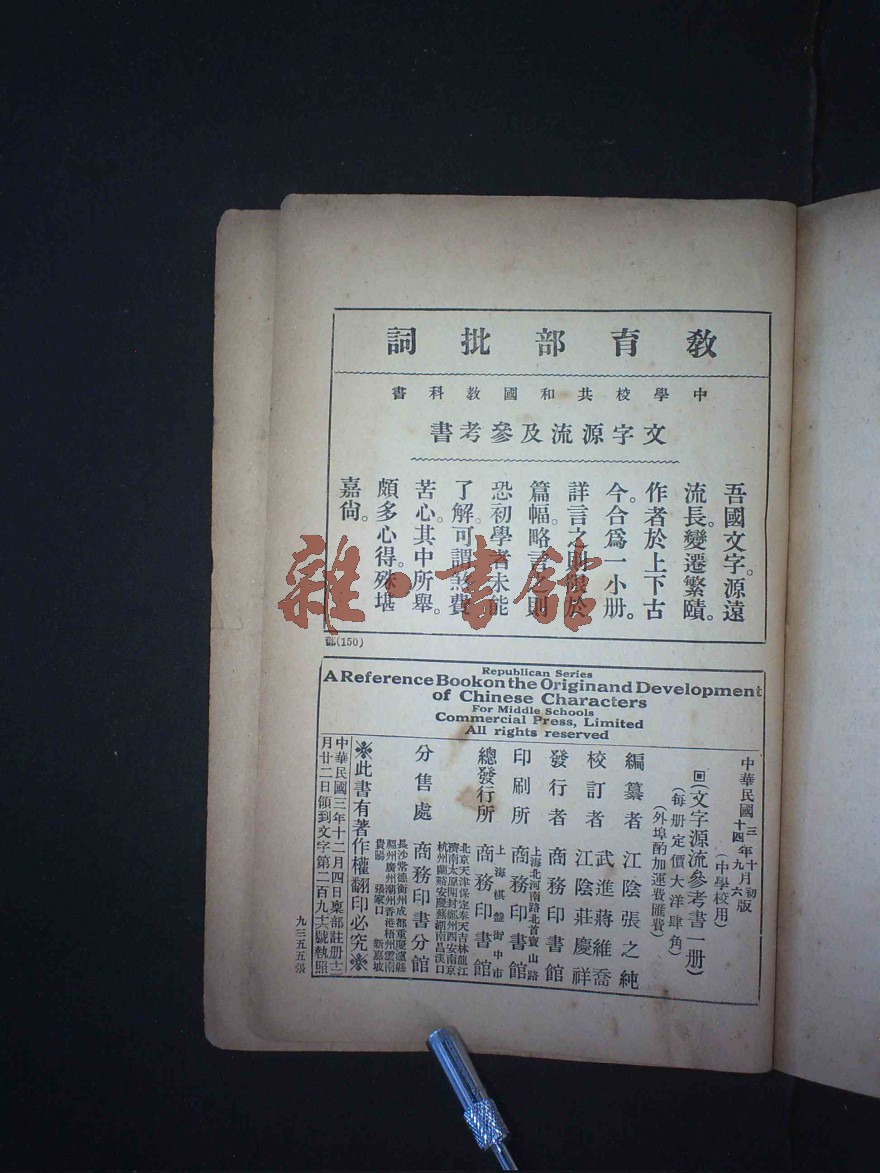 教育部批詞
中學校共和國教科書
文字源流及參考書
吾國文字。源遠
流長。變遷繁賾。
作者於上下古
今。合爲一小册。
詳言之則限於
篇幅。略言之則
恐初學者未能
了解。可謂煞費
苦心。其中所舉。
頗多心得。殊堪
嘉尙。
部(150)
Republican Series
A Reference Book on the Origin and Development
of Chinese Characters
For Middle Schools
Commercial Press, Limited
All rights reserved
中華民國三年十月初版
十四年九月六版
(中學校用)
(文字源流參考書一册)
(每册定價大洋肆角)
(外埠酌加運費匯費)
編纂者 江陰張之純
校訂者 武進蔣維喬
江陰莊慶祥
發行者 商務印書館
印刷所 上海北河南路北首寶山路
商務印書館
總發行所 上海棋盤街中市
商務印書館
分售處 商務印書分館
北京天津保定奉天吉林龍江
濟南太原開封鄭州西安南京
杭州蘭谿安慶蕪湖南昌漢口
長沙常德衡州成都重慶瀘縣
福州廣州潮州香港梧州雲南
貴陽 張家口 新嘉坡
※此書有著作權翻印必究※
中華民國三年十二月四日稟部註册十二
月廿二日領到文字第二百九十六號執照
九三五五張
雜·書館